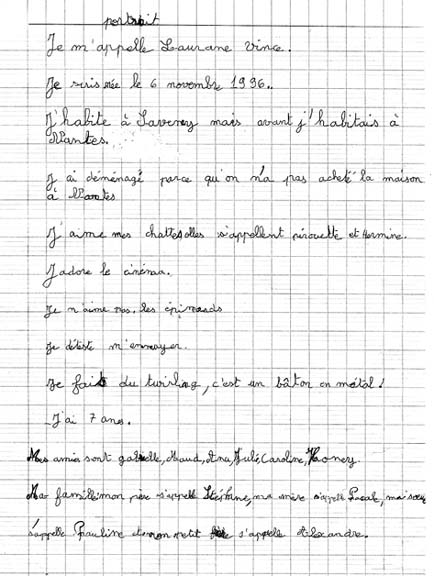 portrait
Je m'appelle Laurane Vince.
Je suis née le 6 novembre 1996.
J'habite à Savenay mais avant j'habitais à
Nantes.
J'ai déménagé parce qu'on n'a pas acheté la maison
à Nantes
J'aime mes chattes elles s'appellent pirouette et hermine.
J'adore le cinéma.
Je n'aime pas les épinards
Je déteste m'ennuyer.
Je fais du twirling, c'est un bâton en métal!
J'ai 7 ans.
Mes amies sont gabrielle, Maud, Ana, Julie, Caroline,
Ma famille: mon père s'appelle ma mère s'appelle Pascale, ma sœur
s'appelle Pauline et mon petit s'appelle Alexandre.